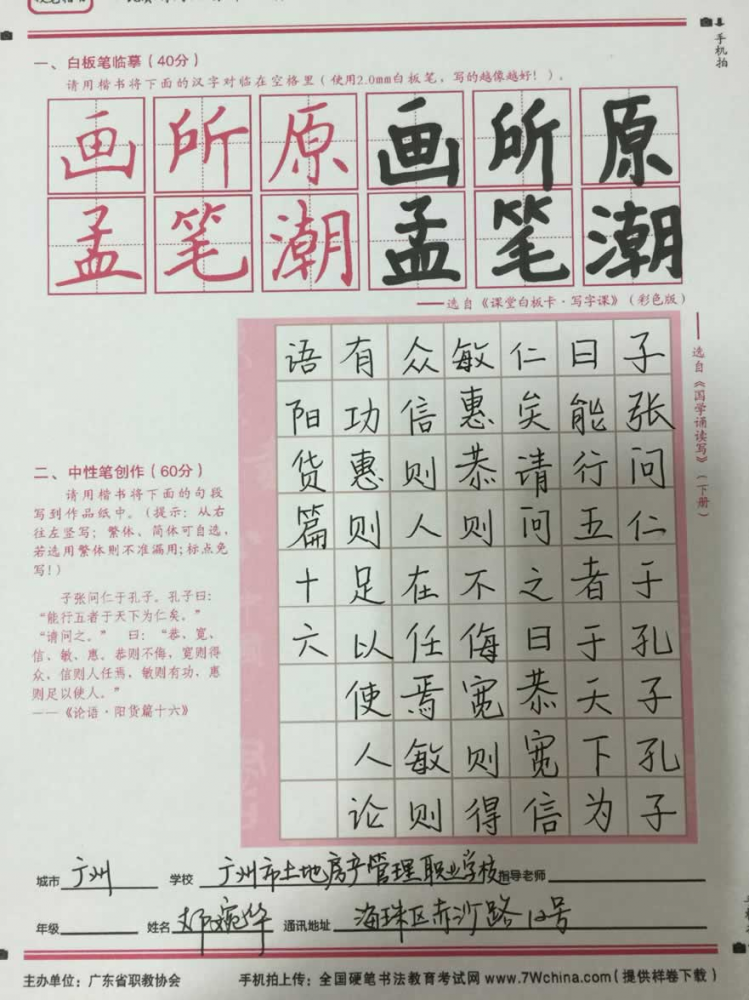 手机拍
一、白板笔临摹（40分）
请用楷书将下面的汉字对临在空格里（使用2.0mm白板笔，写的越像越好！）。
画所原画所原
孟笔潮孟笔潮
——选自《课堂白板卡·写字课》（彩色版）
——选自《国学诵读写》（下册）
二、中性笔创作（60分）
请用楷书将下面的句段
写到作品纸中。（提示：从右
往左竖写；繁体、简体可自选，
若选用繁体则不准漏用；标点免
写！）
子张问仁于孔子。孔子曰：
“能行五者于天下为仁矣。”
“请问之。” 曰：“恭、宽、
信、敏、惠。恭则不侮，宽则得
众，信则人任焉，敏则有功，惠
则足以使人。”
——《论语·阳货篇十六》
子张问仁于孔子孔子
曰能行五者于天下为
仁矣请问之曰恭宽信
敏惠恭则不侮宽则得
众信则人在任焉敏则
有功惠则足以使人论
语阳货篇十六
城市 广州 学校 广州市土地房产管理职业学校 指导老师
年级 姓名 邓婉华 通讯地址 海珠区赤沙路12号
主办单位：广东省职教协会 手机拍上传：全国硬笔书法教育考试网 www.7Wchina.com（提供样卷下载）